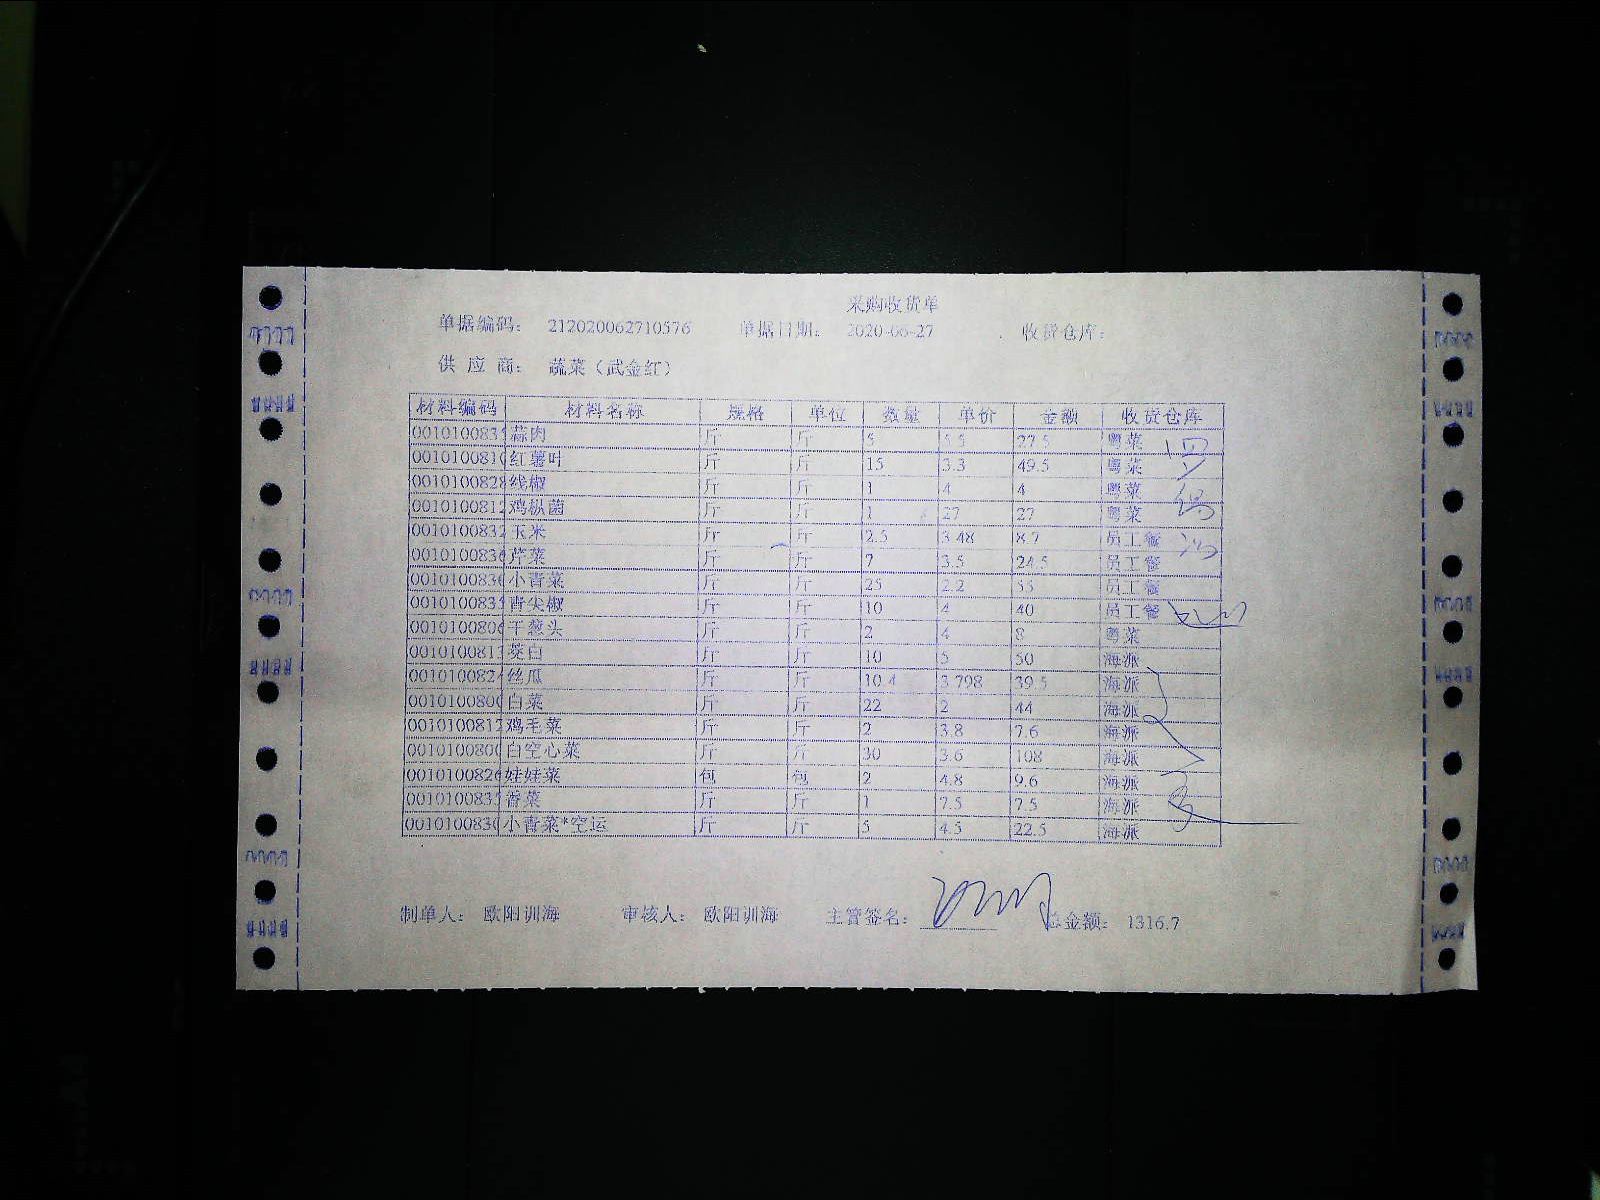 采购收货单
单据编码： 212020062710576 单据日期： 2020-06-27 收货仓库：
供 应 商： 蔬菜（武金红）
材料编码 材料名称 规格 单位 数量 单价 金额 收货仓库
001010083 蒜肉 斤 斤 5 5.5 27.5 粤菜
001010081 红薯叶 斤 斤 15 3.3 49.5 粤菜
0010100828 线椒 斤 斤 1 4 4 粤菜
001010081 鸡枞菌 斤 斤 1 27 27 粤菜
001010083 玉米 斤 斤 2.5 3.48 8.7 员工餐
001010083 芹菜 斤 斤 7 3.5 24.5 员工餐
001010083 小青菜 斤 斤 25 2.2 55 员工餐
001010083 青尖椒 斤 斤 10 4 40 员工餐
001010080 干葱头 斤 斤 2 4 8 粤菜
001010081 茭白 斤 斤 10 5 50 海派
001010082 丝瓜 斤 斤 10.4 3.798 39.5 海派
001010080 白菜 斤 斤 22 2 44 海派
001010081 鸡毛菜 斤 斤 2 3.8 7.6 海派
001010080 白空心菜 斤 斤 30 3.6 108 海派
001010082 娃娃菜 包 包 2 4.8 9.6 海派
001010083 香菜 斤 斤 1 7.5 7.5 海派
001010083 小青菜*空运 斤 斤 5 4.5 22.5 海派
制单人： 欧阳训海 审核人： 欧阳训海 主管签名： 总金额： 1316.7